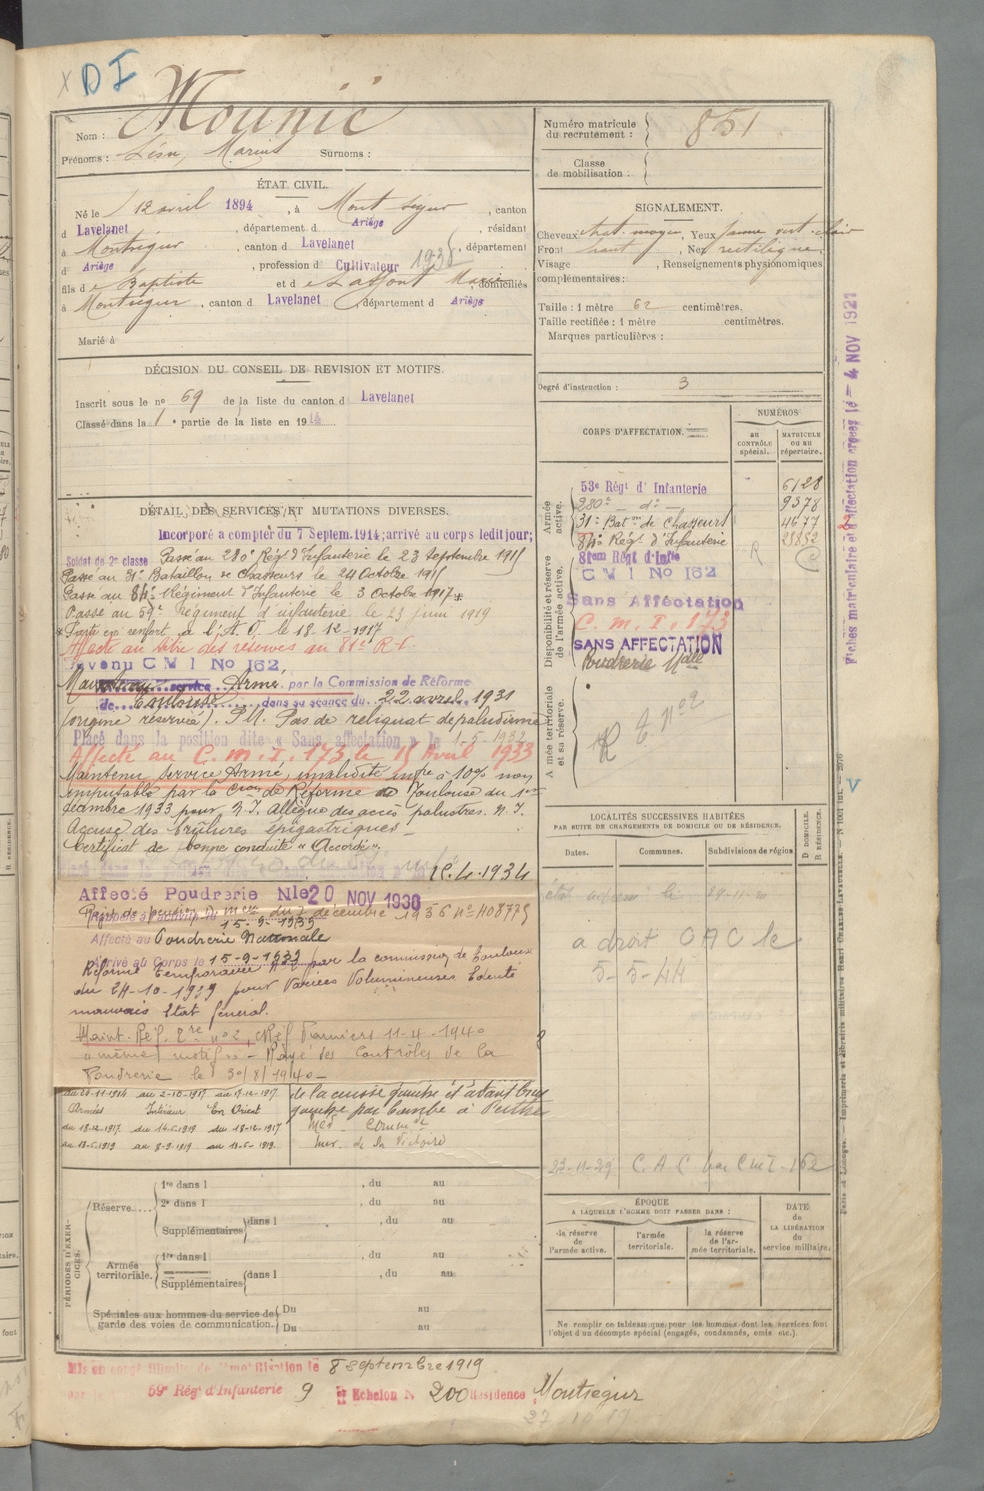 DI
Nom : Mounié
Prénoms : Léon, Marius Surnoms :
Numéro matricule du recrutement : 851
Classe de mobilisation :
ÉTAT CIVIL.
Né le 12 avril 1894, à Montségur, canton
d Lavelanet, département d Ariège, résidant
à Montségur, canton d Lavelanet, département
d Ariège, profession d Cultivateur 1936
fils de Baptiste et de Laffont Marie, domiciliés
à Montségur, canton d Lavelanet, département d Ariège
Marié à
SIGNALEMENT.
Cheveux chat. moyen, Yeux jaune vert clair
Front haut, Nez rectiligne
Visage , Renseignements physionomiques
complémentaires :
Taille : 1 mètre 62 centimètres.
Taille rectifiée : 1 mètre centimètres.
Marques particulières :
Degré d'instruction : 3
DÉCISION DU CONSEIL DE REVISION ET MOTIFS.
Inscrit sous le no 69 de la liste du canton d Lavelanet
Classé dans la 1e partie de la liste en 1914
CORPS D'AFFECTATION.
NUMÉROS
au contrôle spécial.
MATRICULE ou au répertoire.
Armée active.
53e Régt d'Infanterie 6128
280e - do - 9378
31e Batон de Chasseurs 4677
84e Régt d'Infanterie 23852
Disponibilité et réserve de l'armée active.
81em Régt d'Infie
CMI No 162
Sans Affectation
C.m.I. 173
SANS AFFECTATION
Poudrerie Nalle
Armée territoriale et sa réserve.
R T no 2
DÉTAIL DES SERVICES ET MUTATIONS DIVERSES.
Incorporé à compter du 7 Septem. 1914; arrivé au corps ledit jour;
Soldat de 2e classe Passé au 280e Régt d'Infanterie le 23 Septembre 1915
Passé au 31e Bataillon de Chasseurs le 24 Octobre 1915
Passé au 84e Régiment d'Infanterie le 3 Octobre 1917 *
Passé au 59e Régiment d'infanterie le 23 juin 1919
* Parti en renfort à l'A.O. le 18-12-1917
Affecté au titre des réserves au 81e R.I.
Devenu CMI No 162.
Maintenu service Armé, par la Commission de Réforme
de Toulouse dans sa séance du 22 avril 1931
(origine réserve). P.N. Pas de reliquat de paludisme
Placé dans la position dite « Sans affectation » le 1-5-1932
Affecté au C.m.I. 173 le 15 Avril 1933
Maintenu Service Armé, invalidité infre à 10% non
imputable par la Cion de Réforme de Toulouse du 1er
décembre 1933 pour N.I. Allègue des accès palustres. N.I.
Accuse des brûlures épigastriques -
Certificat de bonne conduite « Accordé ».
15.4.1934
Affecté Poudrerie Nle 20 NOV 1936
du 7 décembre 1936 no 408775
15-9-1939
Affecté au Poudrerie Nationale
Arrivé au Corps le 15-9-1939
Réformé Temporaire no 2 par la commission de Toulouse
du 24-10-1939 pour Varices Volumineuses Edenté
mauvais Etat Général.
Maint. Réf. Tre no 2, CRéf Pamiers 11-4-1940
"même motif" - Rayé des Contrôles de la
Poudrerie le 30/8/1940 -
au 2-10-1917 au 17-12-1917
Armées Intérieur En Orient
du 18-12-1917 du 14-6-1919 du 18-12-1917
au 13-6-1919 au 8-9-1919 au 13-6-1919
de la cuisse gauche et
gauche par bombe à Perthes
Méd. Comm
Inter. de la Victoire
LOCALITÉS SUCCESSIVES HABITÉES
PAR SUITE DE CHANGEMENTS DE DOMICILE OU DE RÉSIDENCE.
Dates. Communes. Subdivisions de région. D DOMICILE. R RÉSIDENCE.
a droit CAC le
5-5-44
23-11-29 CAC par CMI-162
ÉPOQUE
A LAQUELLE L'HOMME DOIT PASSER DANS :
la réserve de l'armée active.
l'armée territoriale.
la réserve de l'armée territoriale.
DATE de LA LIBÉRATION du service militaire.
Ne remplir ce tableau que pour les hommes dont les services font
l'objet d'un décompte spécial (engagés, condamnés, omis etc.).
PÉRIODES D'EXERCICES.
Réserve....
1re dans l , du au
2e dans l , du au
Supplémentaires dans l , du au
Armée territoriale.
1re dans l , du au
Supplémentaires dans l , du au
Spéciales aux hommes du service de garde des voies de communication.
Du au
Du au
Mis en congé illimité de démobilisation le 8 septembre 1919
par le 59e Régt d'Infanterie 9 Echelon N 200 Résidence Montségur
27 10 19
Fiches matriculaire et d'affectation créées le - 4 NOV 1921